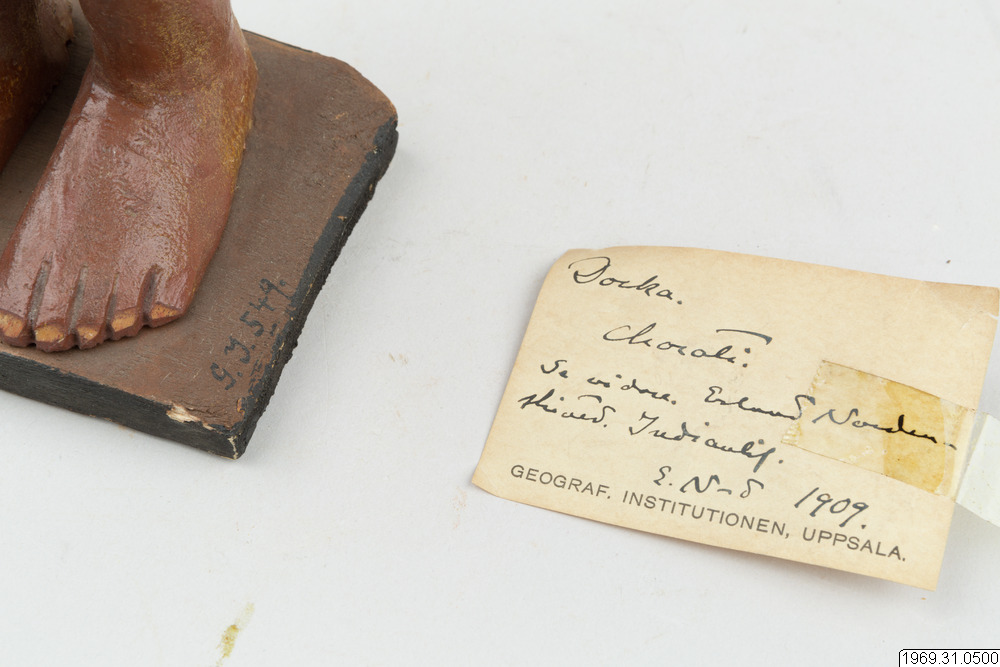 G.I.549.
Docka.
Choroti.
Se vidare Erland Norden-
skiöld. Indianlif.
E. N-d 1909.
GEOGRAF. INSTITUTIONEN, UPPSALA.
1969.31.0500